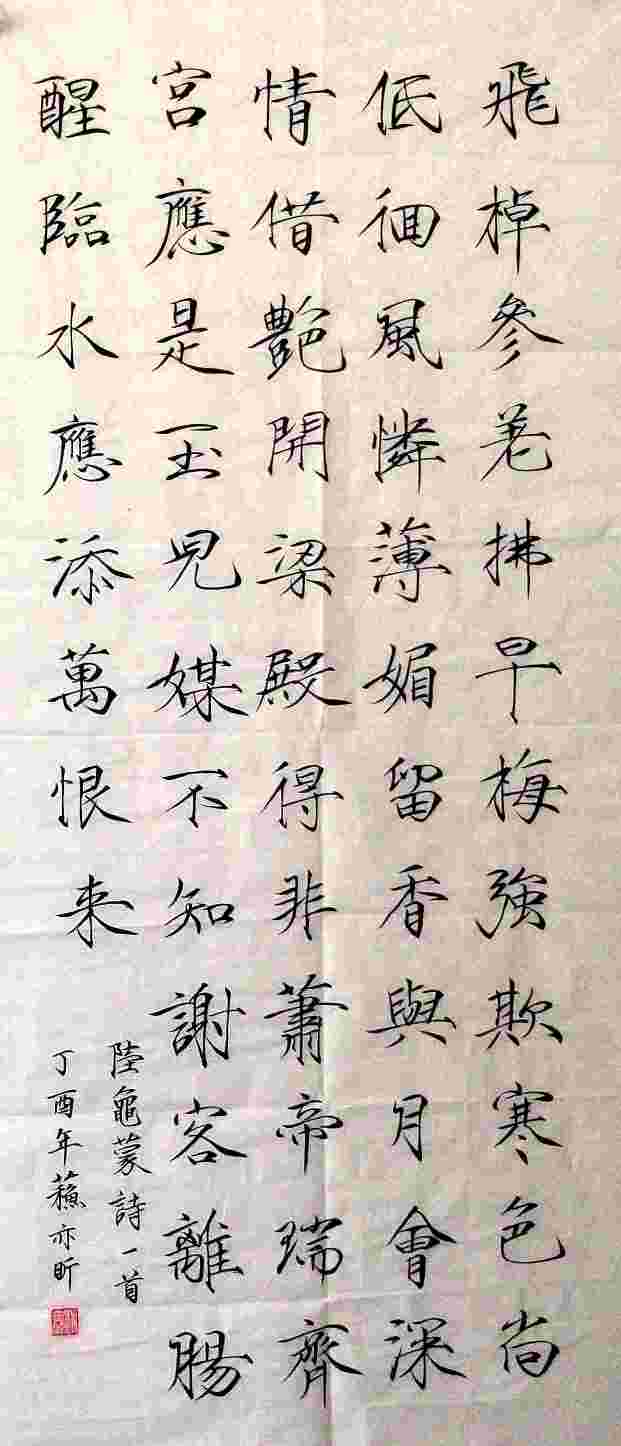 飛棹參差拂早梅強欺寒色尚
低徊風憐薄媚留香與月會深
情借艶開梁殿得非蕭帝瑞齊
宮應是玉兒媒不知謝客離腸
醒臨水應添萬恨来
陸龜蒙詩一首
丁酉年蘓亦昕